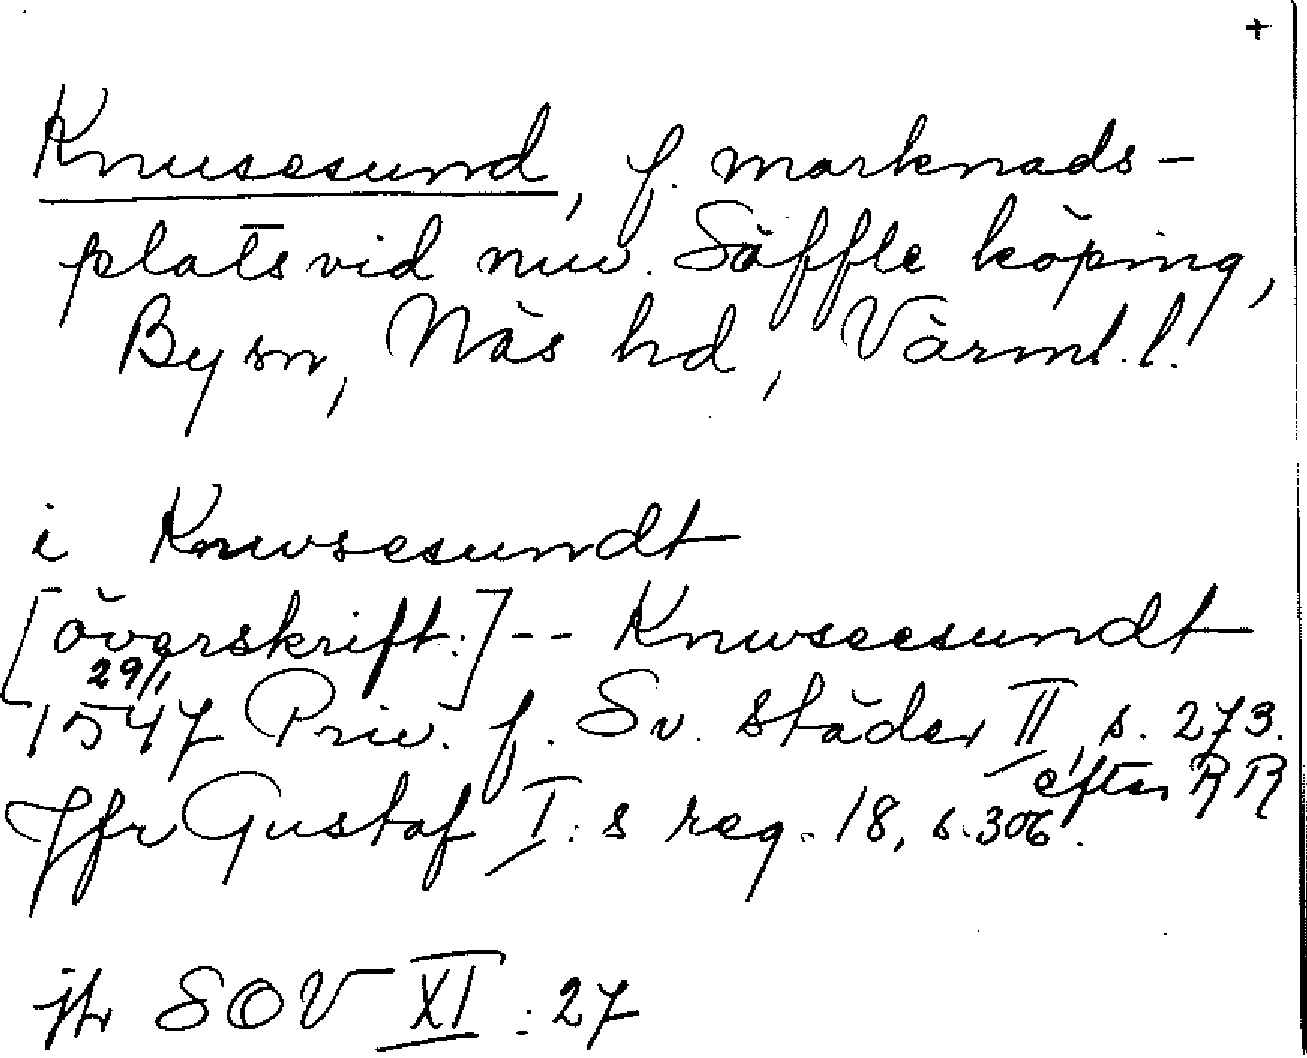 +
Knusesund, f. marknads-
plats vid nuv. Säffle köping,
By sn, Näs hd, Värml. l.
i Knwsesundt
[överskrift.] -- Knwseesundt
29/1
1547 Priv. f. Sv. städer II, s. 273.
efter RR
Jfr Gustaf I:s reg. 18, s. 306.
jfr SOV XI : 27